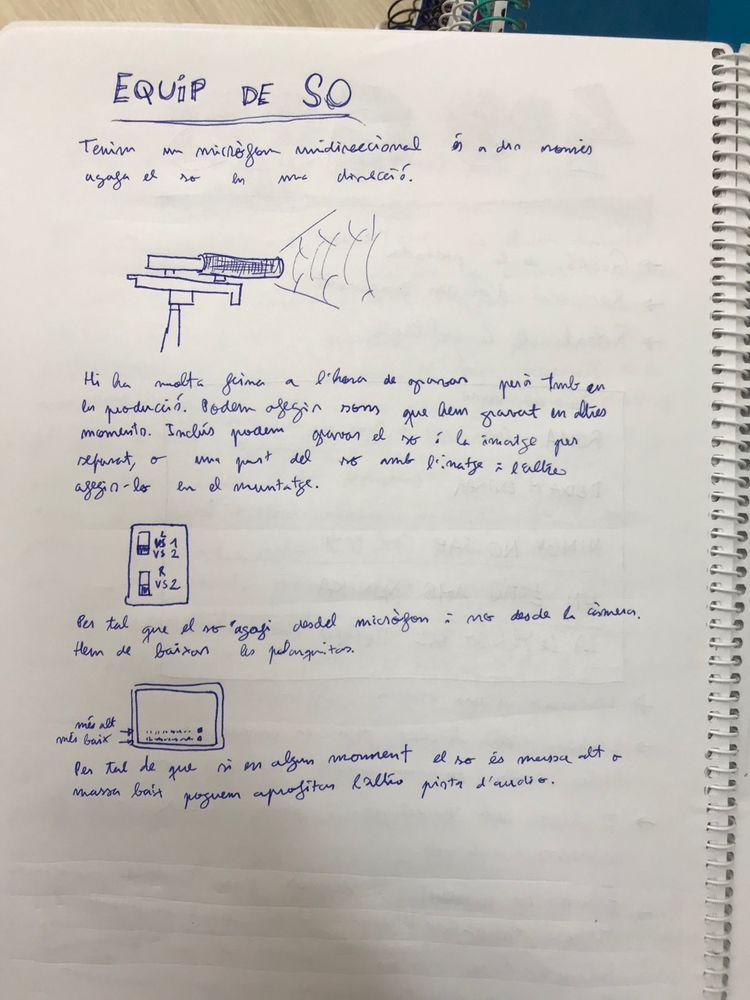 EQUIP DE SO
Tenim un micròfon unidireccional és a dir només
agafa el so en una direcció.
Hi ha molta feina a l'hora de gravar però tmb en
la producció. Podem afegir sons que hem gravat en altres
moments. Inclús podem gravar el so i la imatge per
separat, o una part del so amb l'imatge i l'altre
afegir-lo en el muntatge.
L
VS 1
VS 2
R
VS 2
Per tal que el so agafi desdel micròfon i no desde la càmera.
Hem de baixar les palanquitas.
més alt
més baix
Per tal de que si en algun moment el so és massa alt o
massa baix poguem aprofitar l'altre pista d'audio.